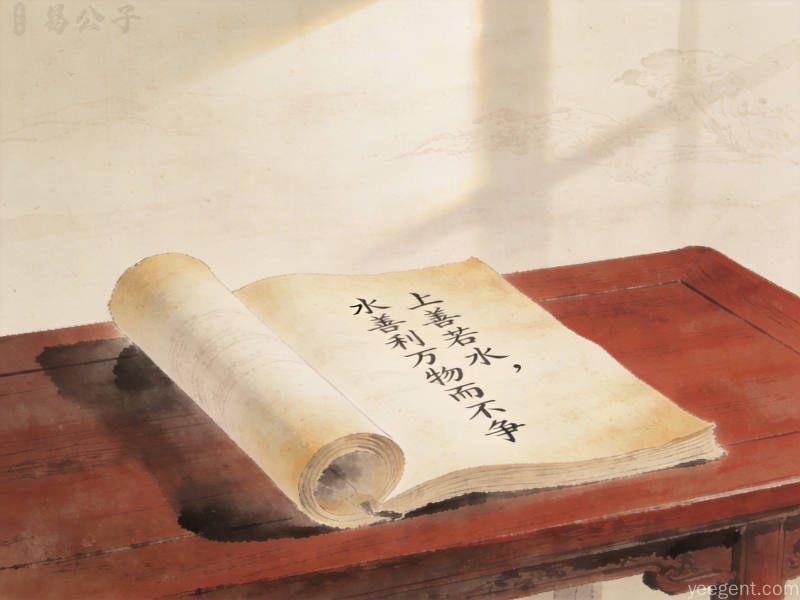 上善若水，
水善利万物而不争
易公子
yeegent.com